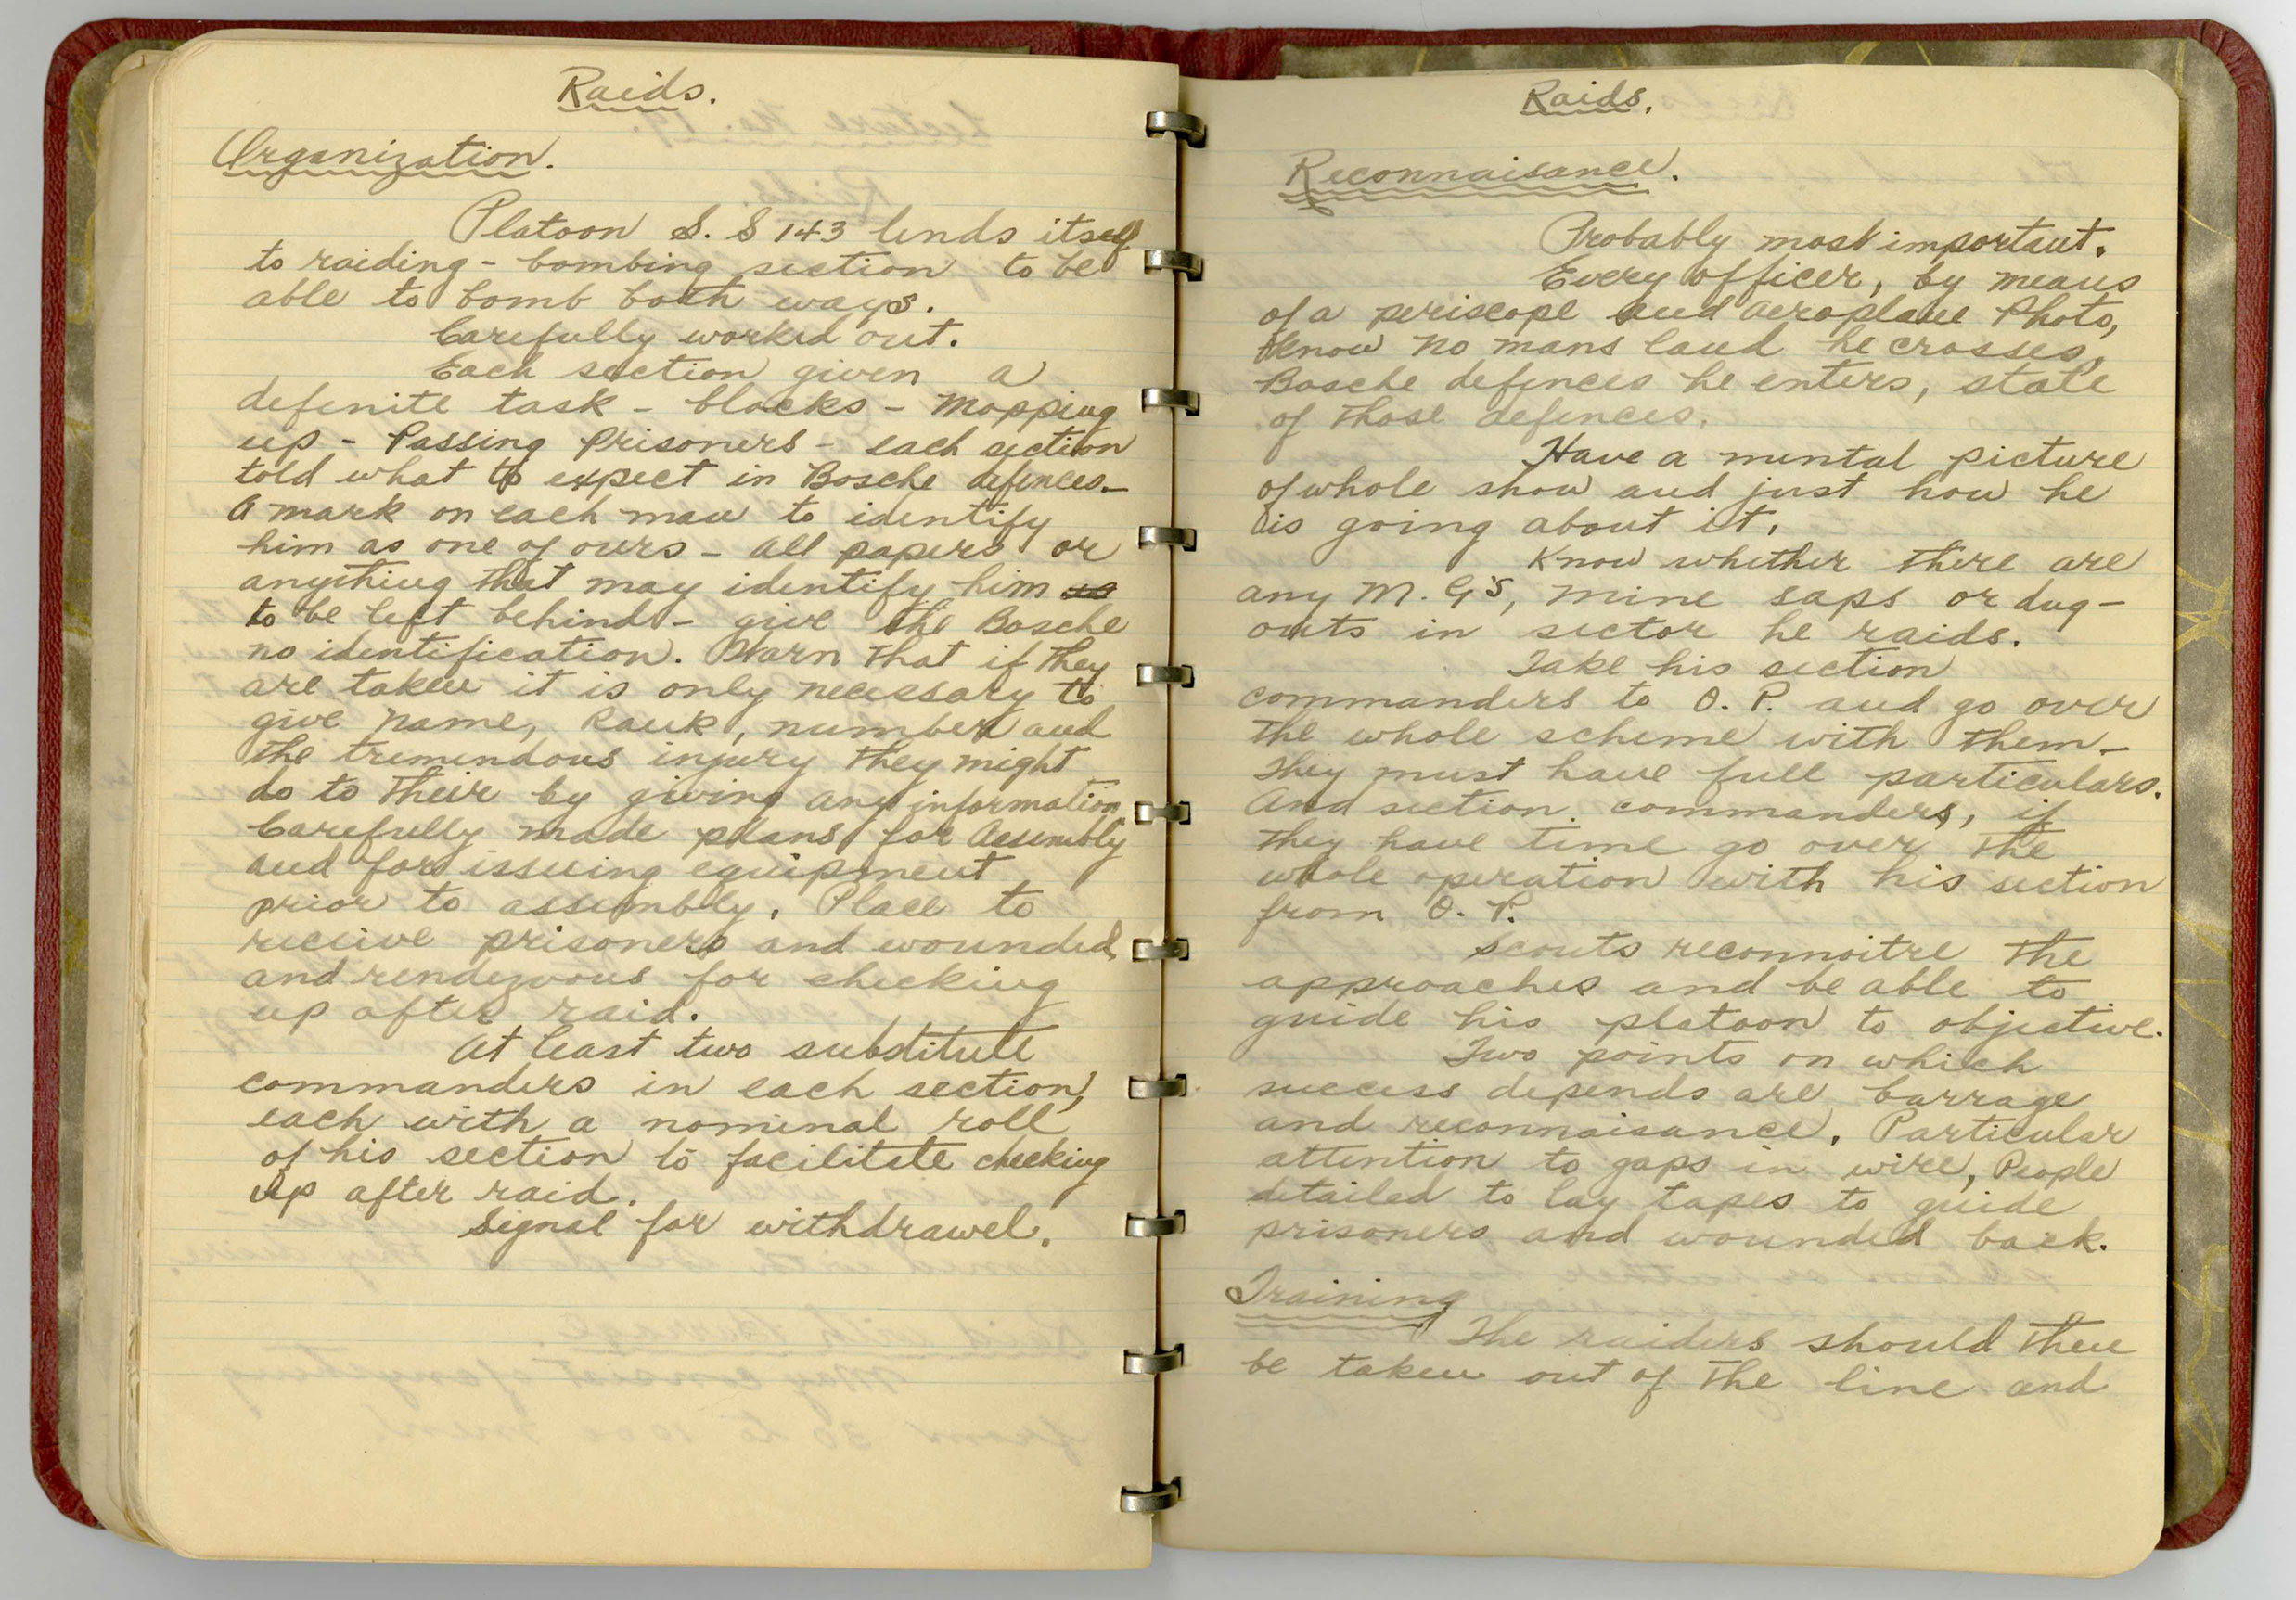 Raids.
Organization.
Platoon S. S 143 lends itself
to raiding - bombing section to be
able to bomb both ways.
Carefully worked out.
Each section given a
definite task - blocks - Mopping
up - Passing Prisoners - each section
told what to expect in Bosche defences -
A mark on each man to identify
him as one of ours - all papers or
anything that may identify him
to be left behind - give the Bosche
no identification. Warn that if they
are taken it is only necessary to
give name, Rank, number and
the tremendous injury they might
do to their by giving any information.
Carefully made plans for Assembly
and for issuing equipment
prior to assembly. Place to
receive prisoners and wounded,
and rendezvous for checking
up after raid.
At least two substitute
commanders in each section,
each with a nominal roll
of his section to facilitate checking
up after raid.
Signal for withdrawel.
Raids.
Reconnaisance.
Probably most important.
Every officer, by means
of a periscope and Aeroplane Photo,
know No mans land he crosses,
Bosche defences he enters, state
of those defences.
Have a mental picture
of whole show and just how he
is going about it.
Know whether there are
any M. G's, mine saps or dug-
outs in sector he raids.
Take his section
commanders to O. P. and go over
the whole scheme with them -
They must have full particulars.
And section commanders, if
they have time go over the
whole operation with his section
from O. P.
Scouts reconnoitre the
approaches and be able to
guide his platoon to objective.
Two points on which
success depends are barrage
and reconnaisance. Particular
attention to gaps in wire, People
detailed to lay tapes to guide
prisoners and wounded back.
Training
The raiders should then
be taken out of the line and